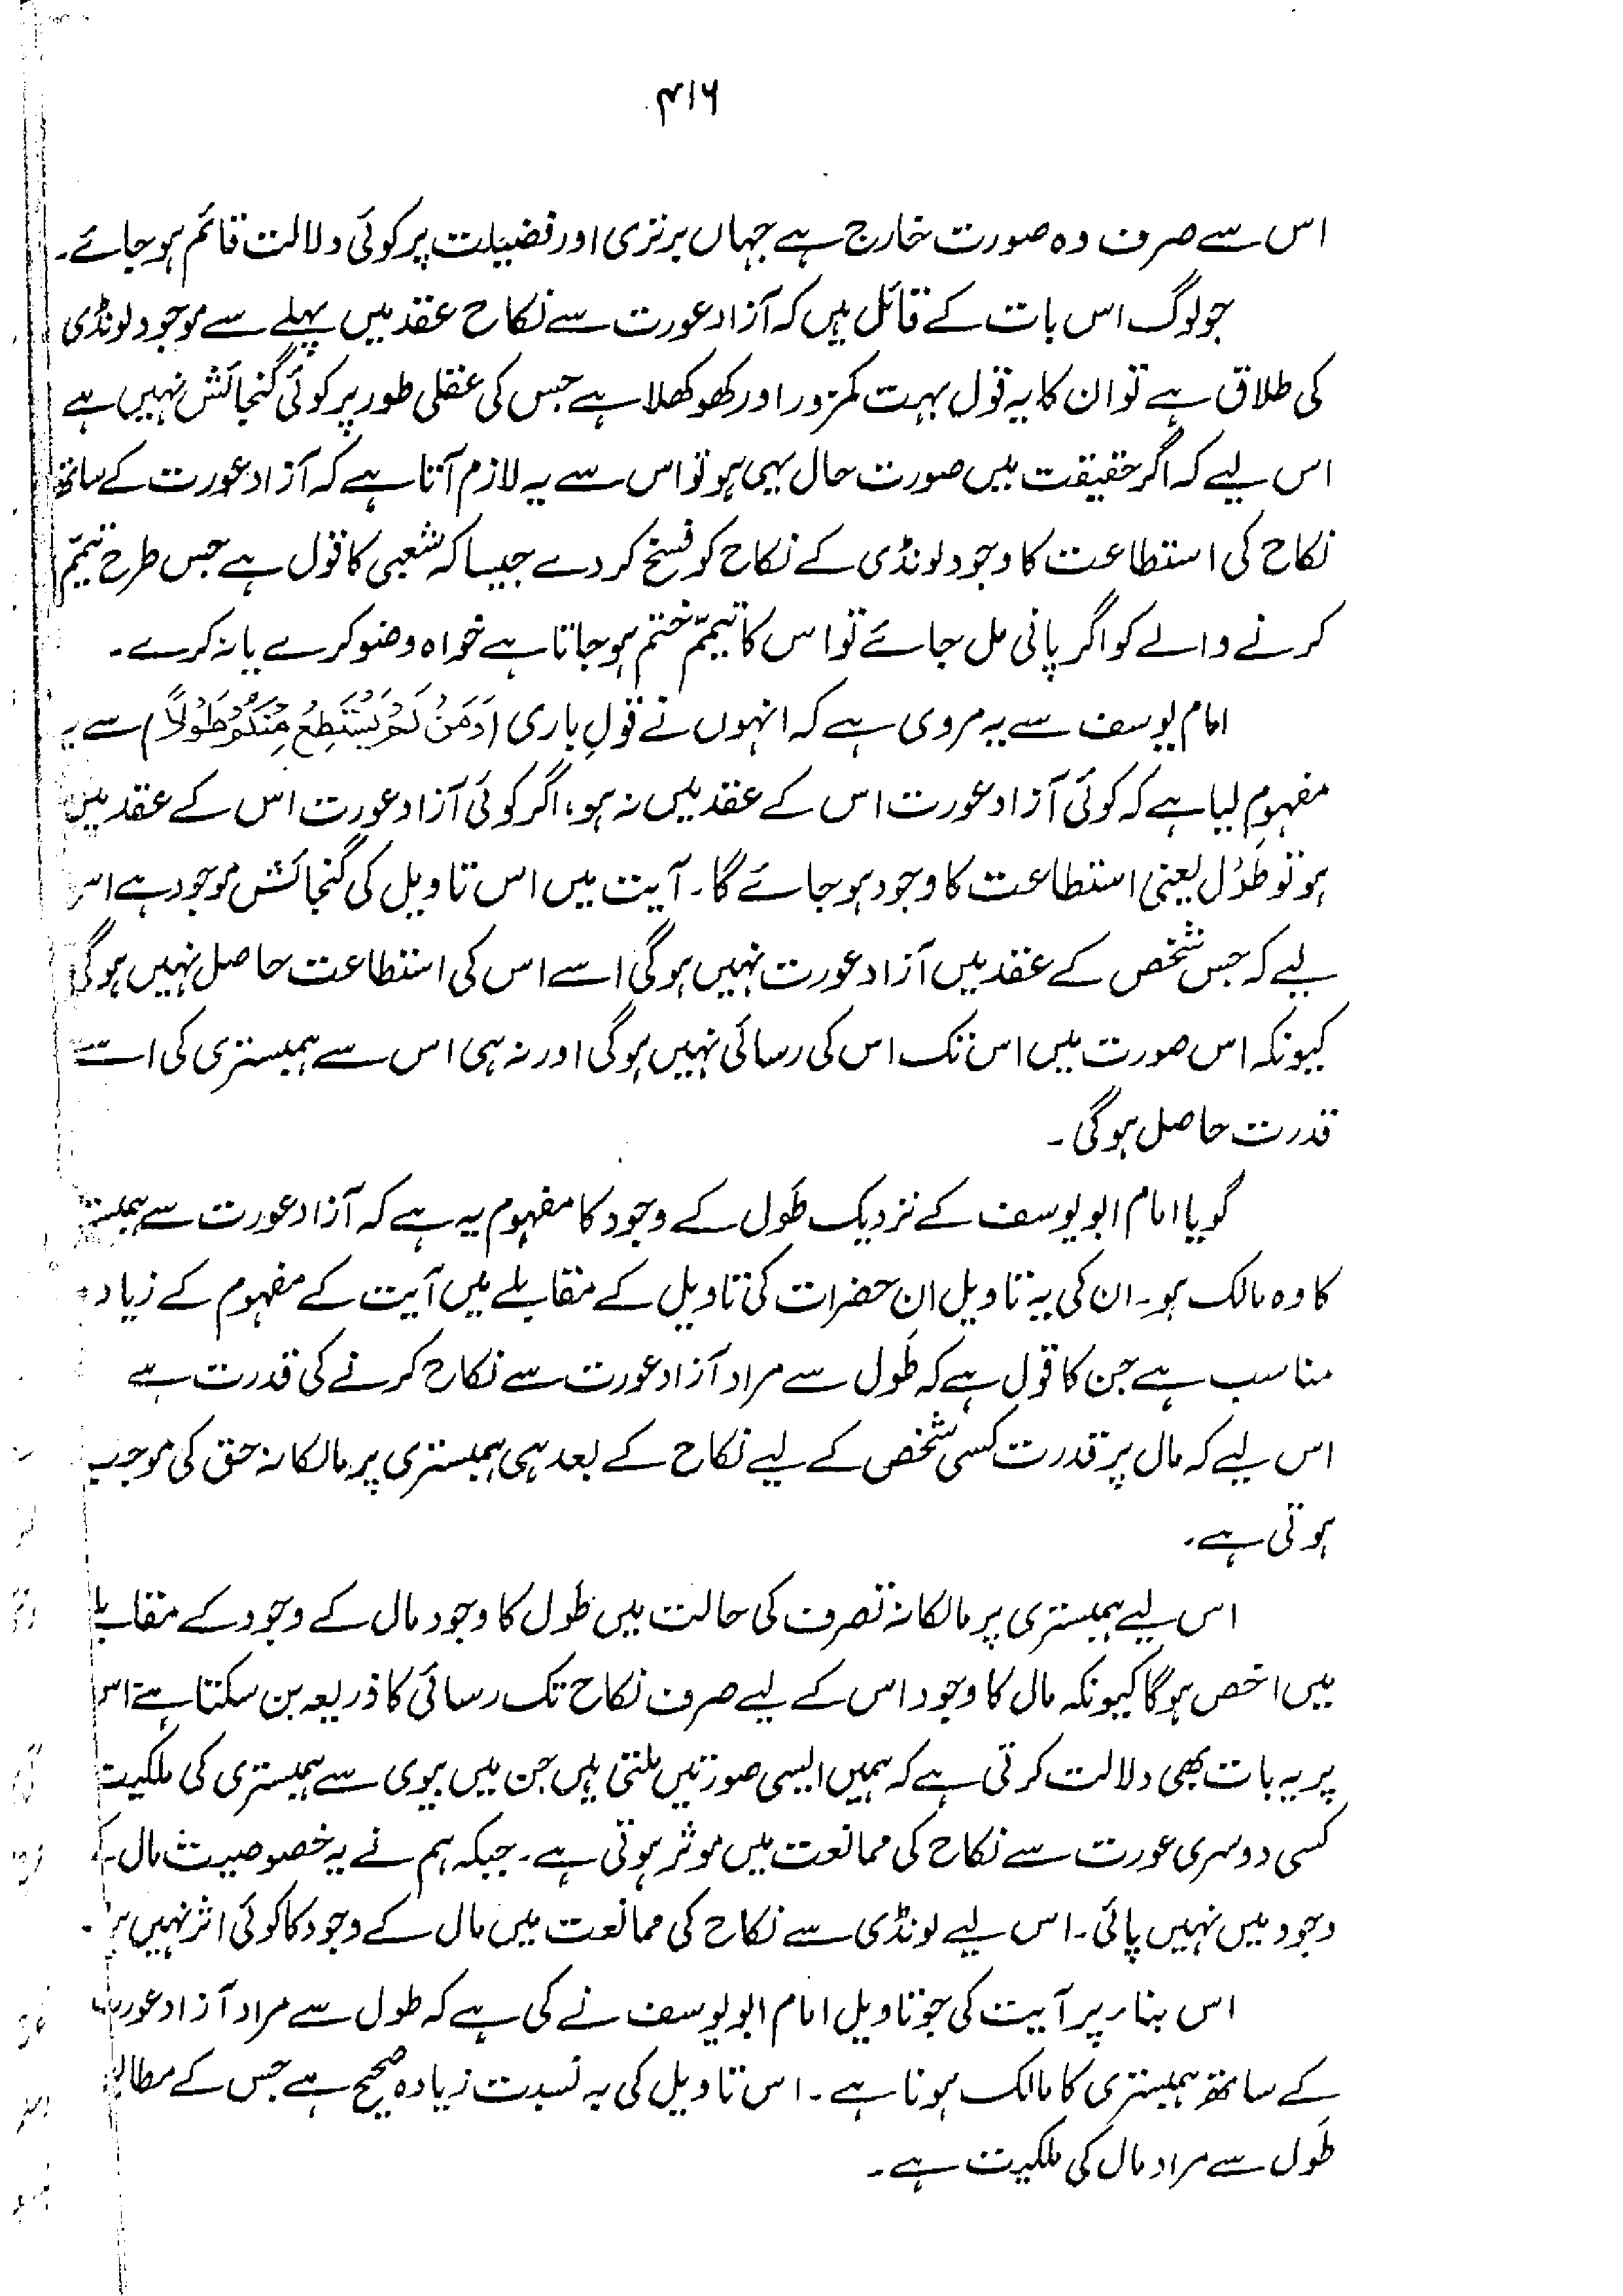 ۴۱۶
اس سے صرف وہ صورت خارج ہے جہاں برتری اور فضیلت پر کوئی دلالت قائم ہو جائے۔
جو لوگ اس بات کے قائل ہیں کہ آزاد عورت سے نکاح عقد میں پہلے سے موجود لونڈی
کی طلاق ہے تو ان کا یہ قول بہت کمزور اور کھوکھلا ہے جس کی عقلی طور پر کوئی گنجائش نہیں ہے
اس لیے کہ اگر حقیقت میں صورت حال یہی ہو تو اس سے یہ لازم آتا ہے کہ آزاد عورت کے ساتھ
نکاح کی استطاعت کا وجود لونڈی کے نکاح کو فسخ کر دے جیسا کہ شعبی کا قول ہے جس طرح تیمّم
کرنے والے کو اگر پانی مل جائے تو اس کا تیمّم ختم ہو جاتا ہے خواہ وضو کرے یا نہ کرے۔
امام یوسف سے یہ مروی ہے کہ انہوں نے قولِ باری (وَمَنْ لَمْ يَسْتَطِعْ مِنْكُمْ طَوْلًا) سے یہ
مفہوم لیا ہے کہ کوئی آزاد عورت اس کے عقد میں نہ ہو، اگر کوئی آزاد عورت اس کے عقد میں
ہو تو طَوْل یعنی استطاعت کا وجود ہو جائے گا۔ آیت میں اس تاویل کی گنجائش موجود ہے اس
لیے کہ جس شخص کے عقد میں آزاد عورت نہیں ہو گی اسے اس کی استطاعت حاصل نہیں ہو گی
کیونکہ اس صورت میں اس تک اس کی رسائی نہیں ہو گی اور نہ ہی اس سے ہمبستری کی اسے
قدرت حاصل ہو گی۔
گویا امام ابو یوسف کے نزدیک طَول کے وجود کا مفہوم یہ ہے کہ آزاد عورت سے
کا وہ مالک ہو۔ ان کی یہ تاویل ان حضرات کی تاویل کے مقابلے میں آیت کے مفہوم کے زیادہ
مناسب ہے جن کا قول ہے کہ طَول سے مراد آزاد عورت سے نکاح کرنے کی قدرت ہے
اس لیے کہ مال پر قدرت کسی شخص کے لیے نکاح کے بعد ہی ہمبستری پر مالکانہ حق کی موجب
ہوتی ہے۔
اس لیے ہمبستری پر مالکانہ تصرف کی حالت میں طَول کا وجود مال کے وجود کے
میں اخص ہو گا کیونکہ مال کا وجود اس کے لیے صرف نکاح تک رسائی کا ذریعہ بن سکتا ہے اس
پر یہ بات بھی دلالت کرتی ہے کہ ہمیں ایسی صورتیں ملتی ہیں جن میں بیوی سے ہمبستری کی ملکیت
کسی دوسری عورت سے نکاح کی ممانعت میں موثر ہوتی ہے۔ جبکہ ہم نے یہ خصوصیت مال کے
وجود میں نہیں پائی۔ اس لیے لونڈی سے نکاح کی ممانعت میں مال کے وجود کا کوئی اثر نہیں
اس بناء پر آیت کی جو تاویل امام ابو یوسف نے کی ہے کہ طول سے مراد آزاد عورت
کے ساتھ ہمبستری کا مالک ہونا ہے۔ اس تاویل کی بہ نسبت زیادہ صحیح ہے جس کے
طَول سے مراد مال کی ملکیت ہے۔